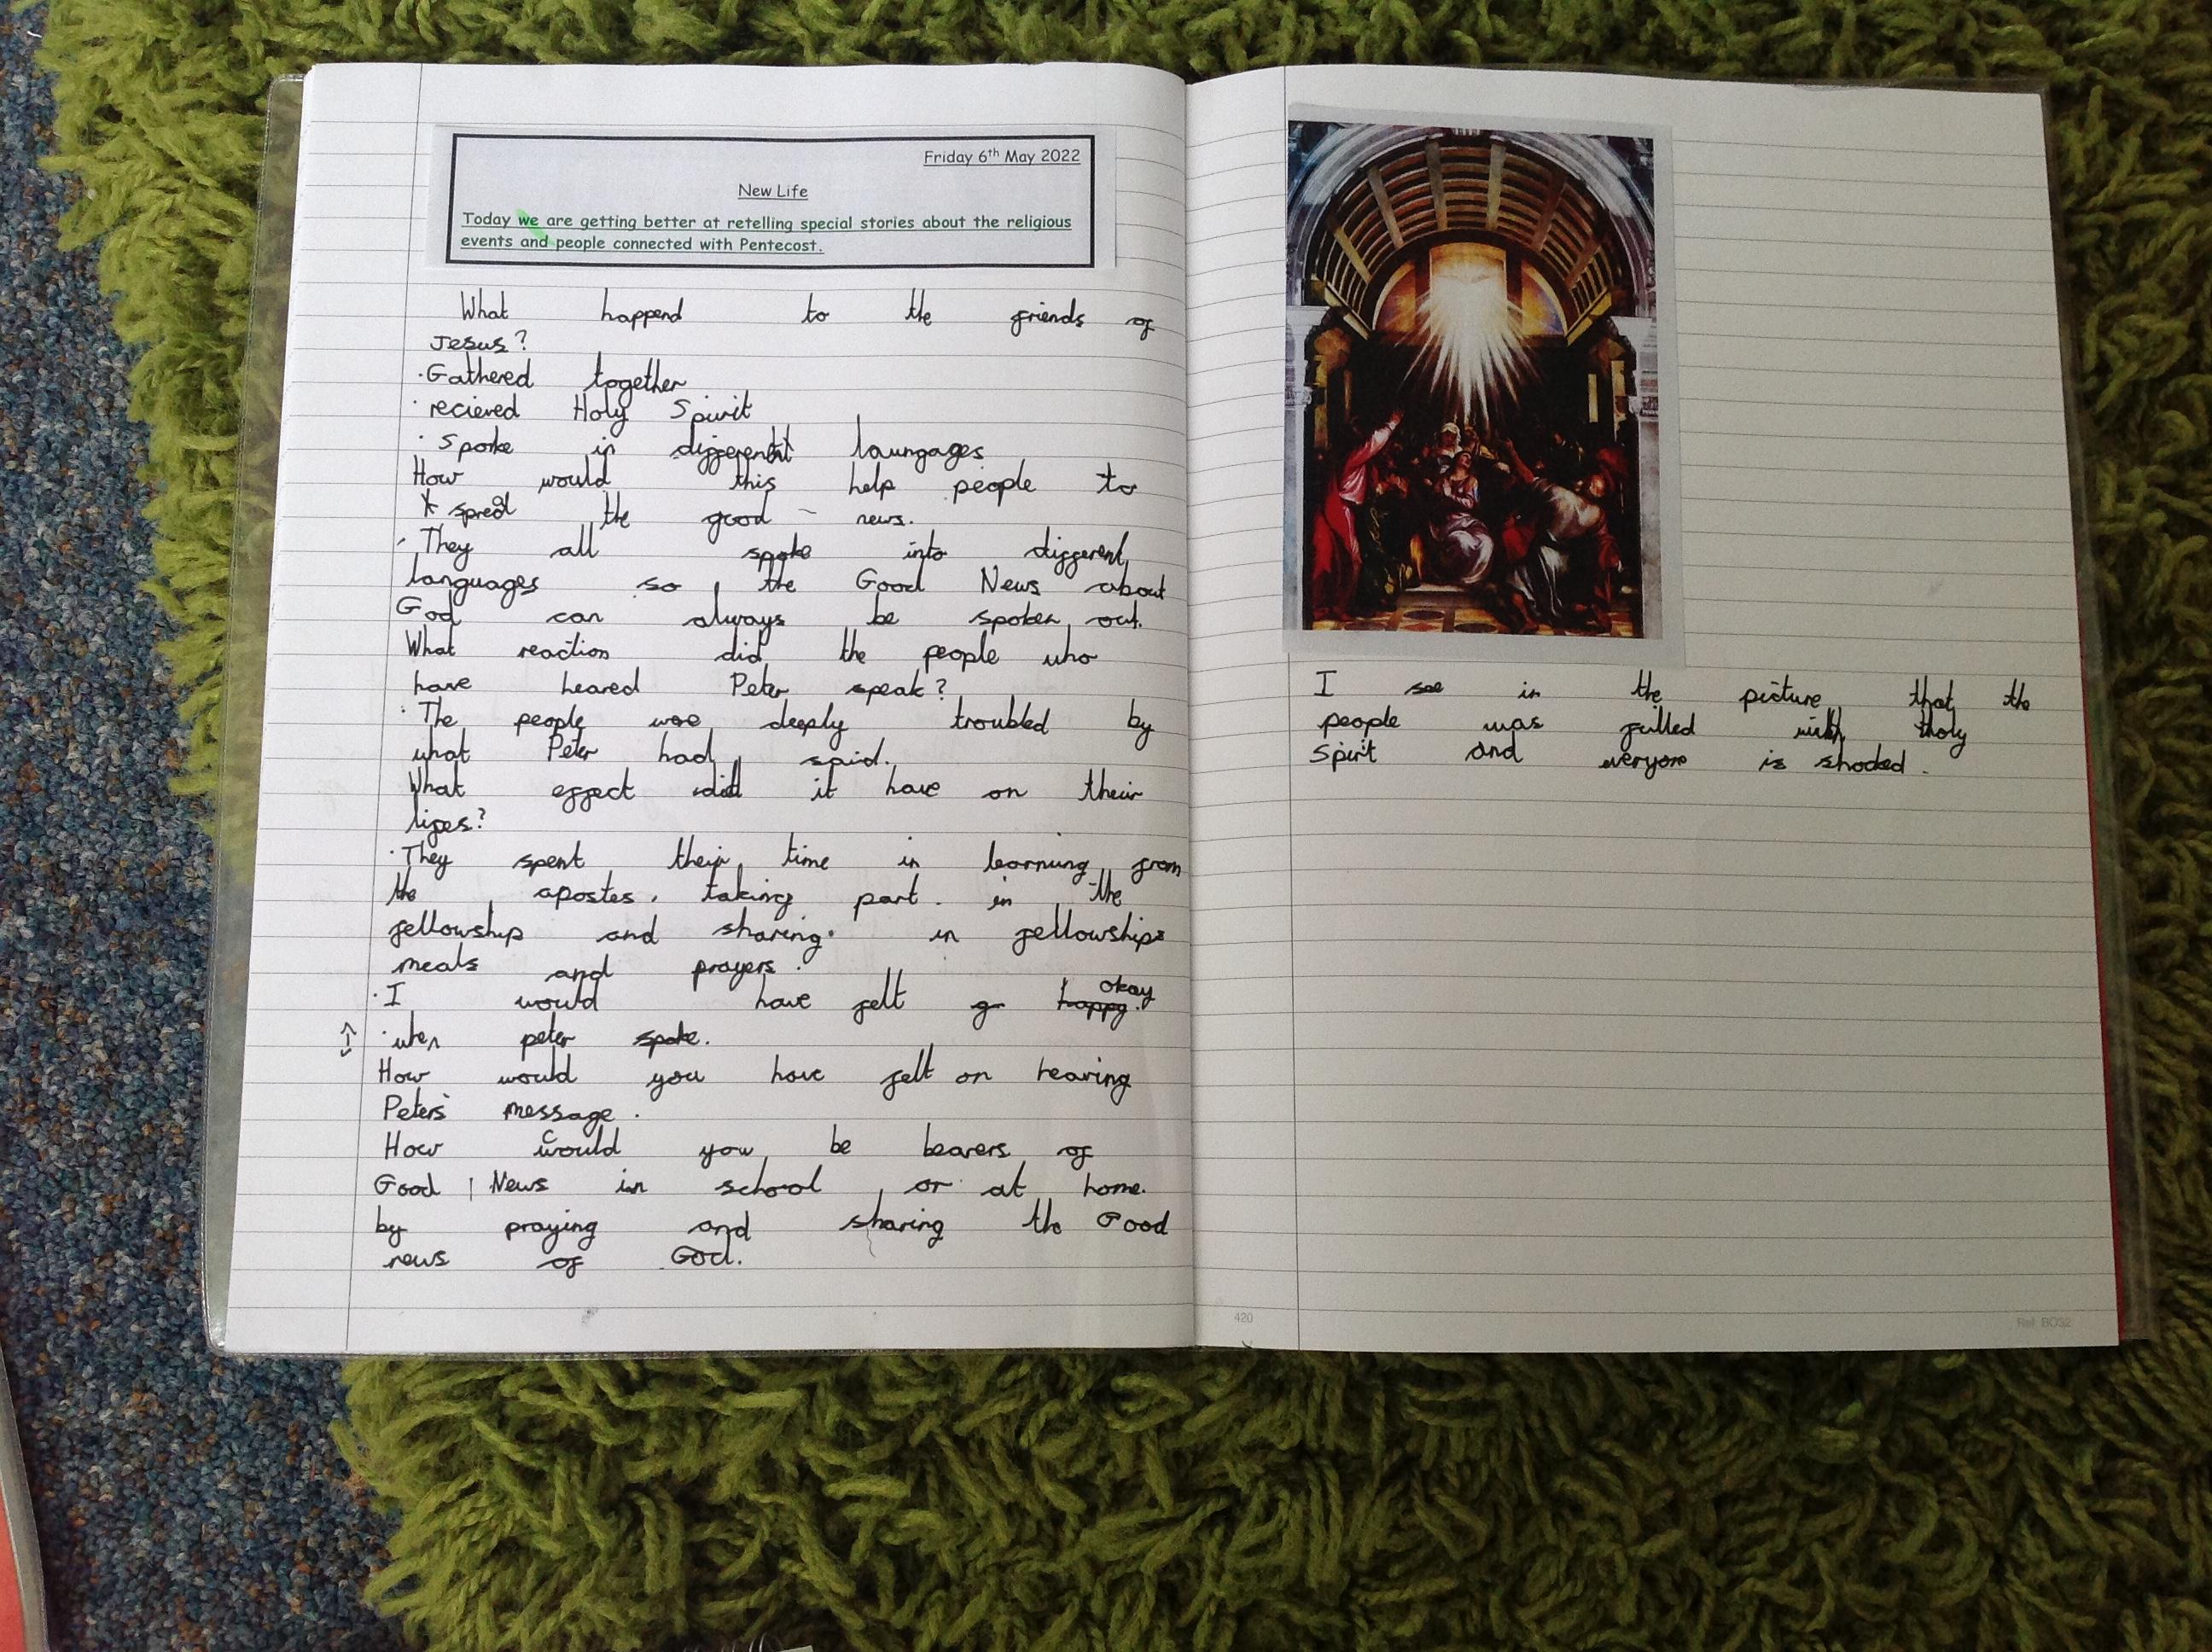 Friday 6th May 2022
New Life
Today we are getting better at retelling special stories about the religious
events and people connected with Pentecost.
What happend to the friends of
Jesus?
· Gathered together
· recieved Holy Spirit
· spoke in different laungages
How would this help people to
spread the good news.
· They all spoke into different
languages so the Good News about
God can always be spoken out.
What reaction did the people who
have heared Peter speak?
· The people woe deeply troubled by
what Peter had said.
What effect did it have on their
lifes?
· They spent their time in learning from
the apostes, taking part in the
fellowship and sharing in fellowship
meals and prayers.
· I would have felt okay
· when peter spoke.
How would you have felt on hearing
Peters' message.
How could you be bearers of
Good News in school or at home.
by praying and sharing the Good
news of God.
I see in the picture that the
people was filled with Holy
Spirit and everyone is shoded.
420
Ref BOS2